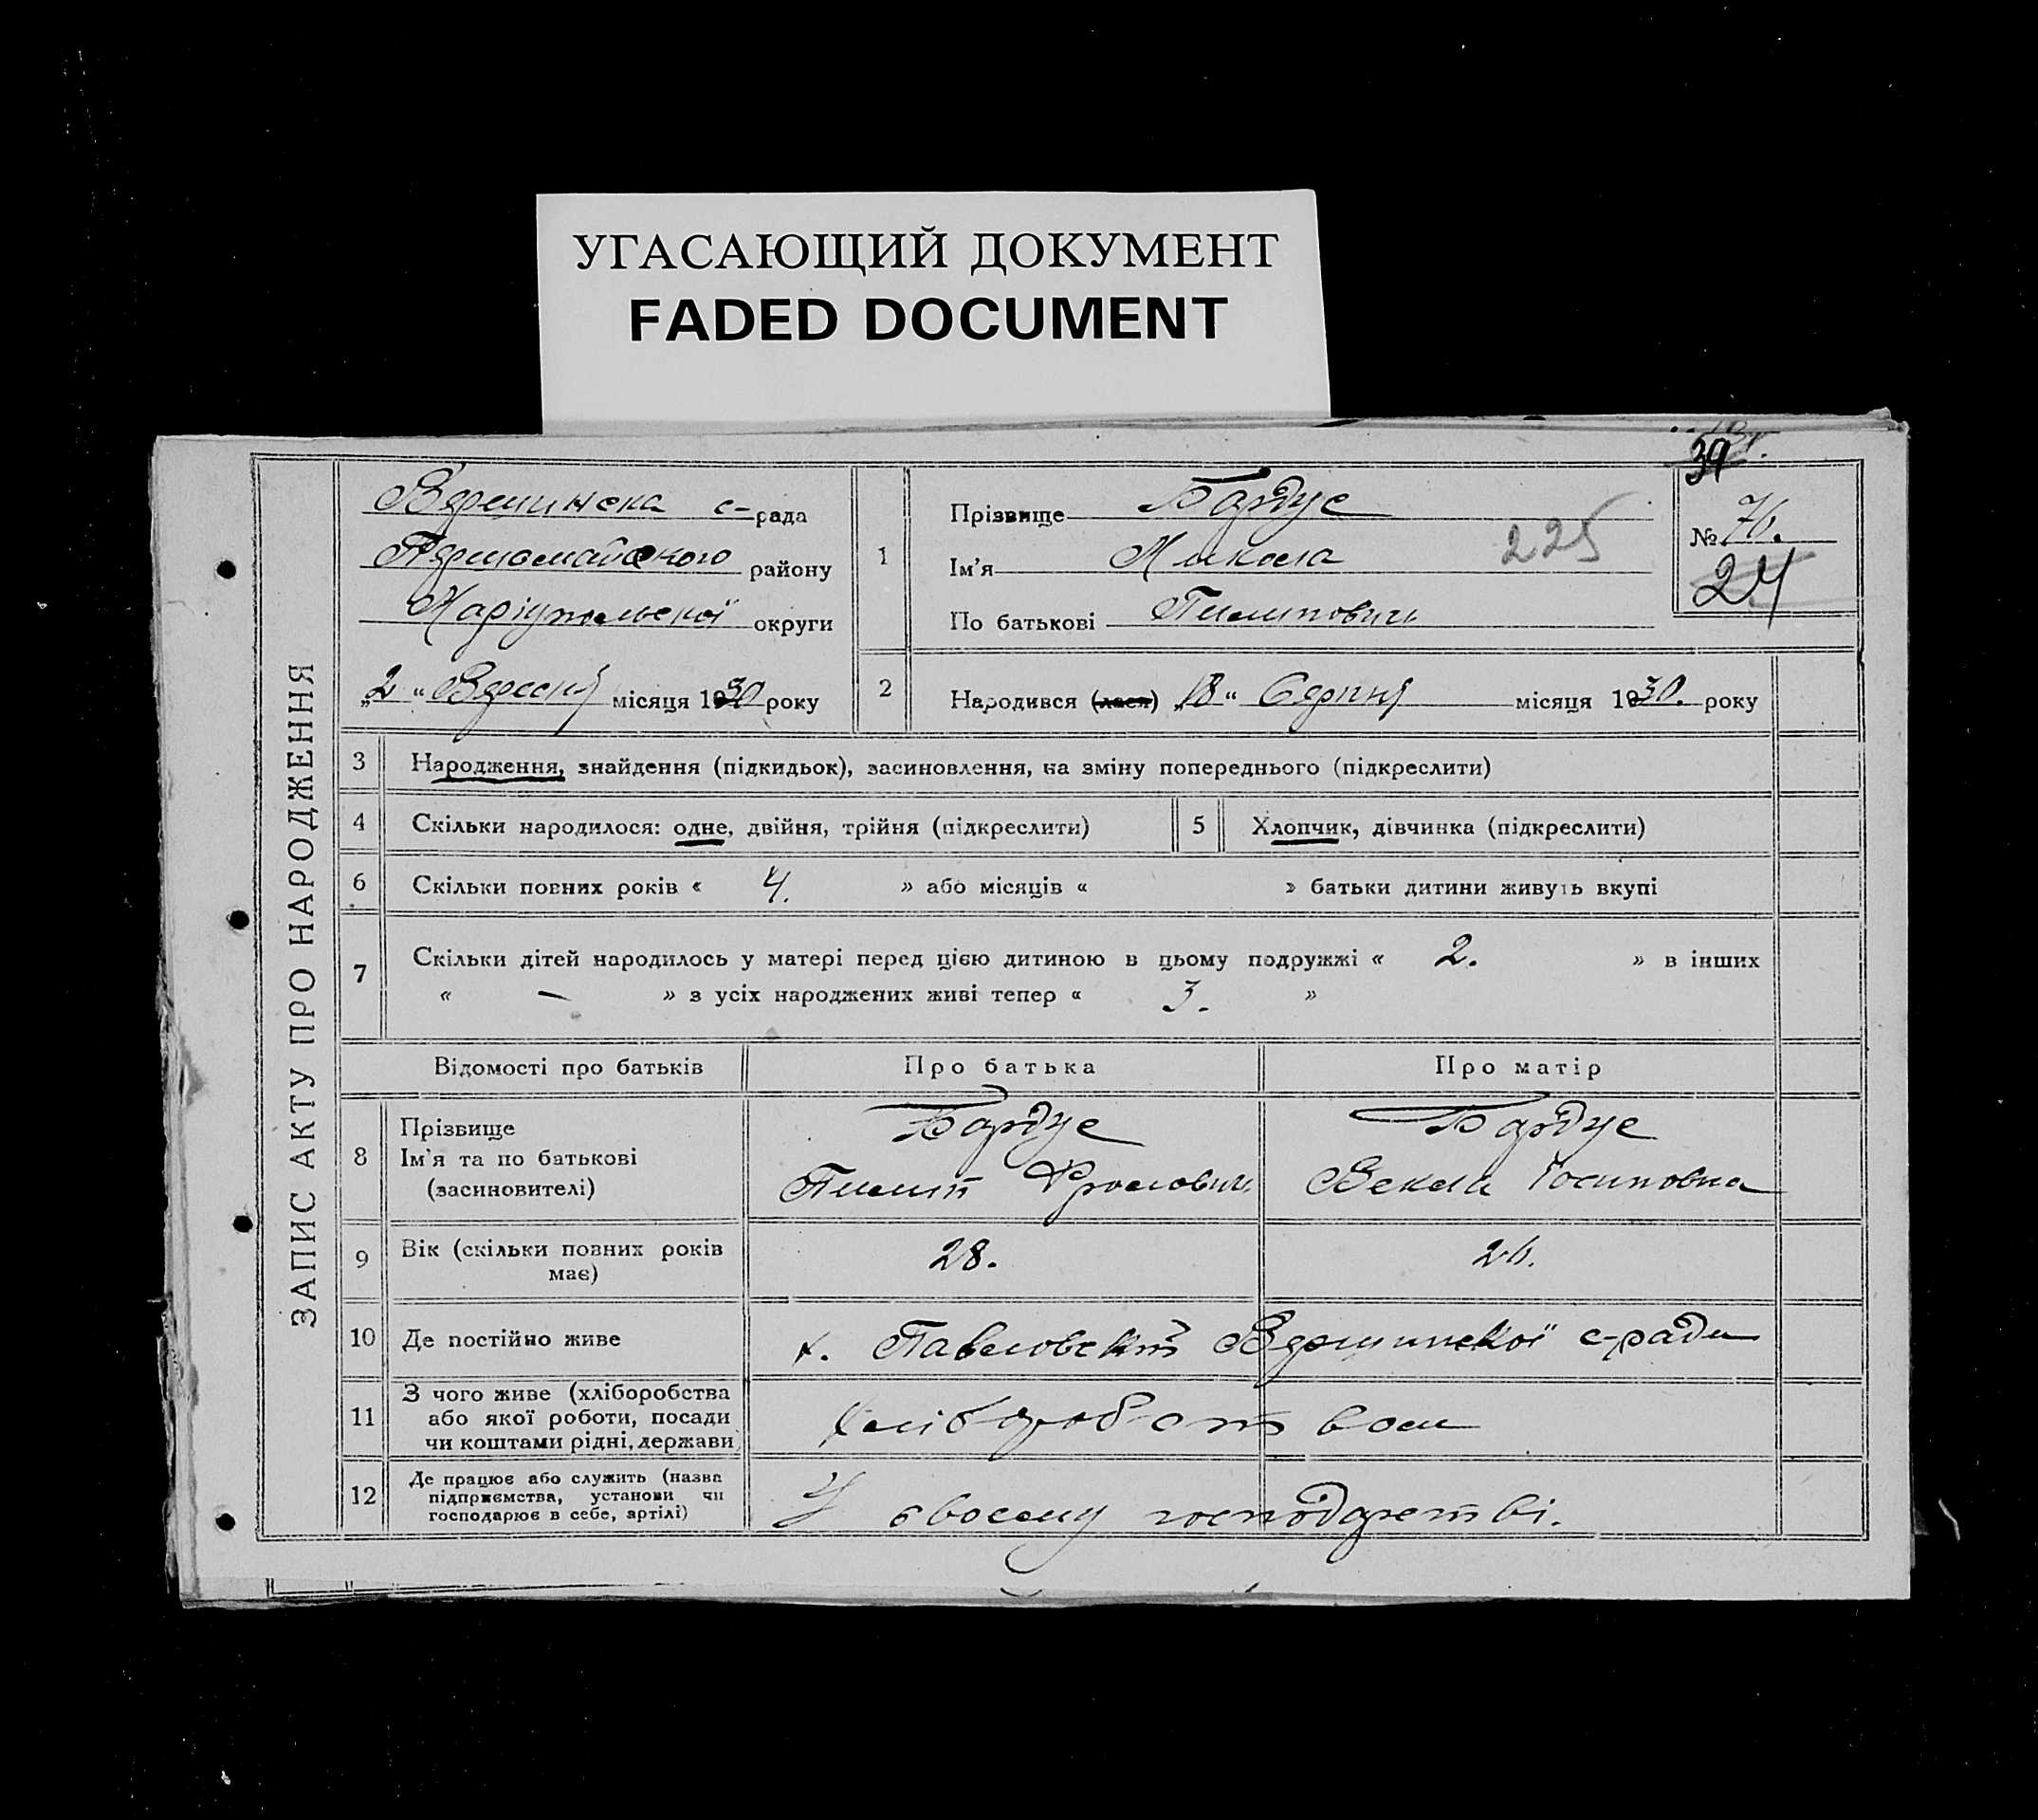 УГАСАЮЩИЙ ДОКУМЕНТ
FADED DOCUMENT
ЗАПИС АКТУ ПРО НАРОДЖЕННЯ
39
№ 76.
24
225
Вершинска с-рада
Першомайського району
Маріупольскої округи
„2 “ Вересня місяця 1930 року
1
Прізвище Бардус
Ім'я Микола
По батькові Пилипович
2 Народився (лася) „18 “ Серпня місяця 1930. року
3 Народження, знайдення (підкидьок), засиновлення, на зміну попереднього (підкреслити)
4 Скільки народилося: одне, двійня, трійня (підкреслити) 5 Хлопчик, дівчинка (підкреслити)
6 Скільки повних років « 4. » або місяців « » батьки дитини живуть вкупі
7 Скільки дітей народилось у матері перед цією дитиною в цьому подружжі « 2. » в інших
« — » з усіх народжених живі тепер « 3. »
Відомості про батьків Про батька Про матір
8 Прізвище Бардус Бардус
Ім'я та по батькові Пилип Фролович Векла Йосиповна
(засиновителі)
9 Вік (скільки повних років 28. 26.
має)
10 Де постійно живе х. Павловский Вершинскої с-ради
11 З чого живе (хліборобства
або якої роботи, посади хліборобством
чи коштами рідні, держави)
12 Де працює або служить (назва
підприємства, установи чи У своему господарстві.
господарює в себе, артілі)